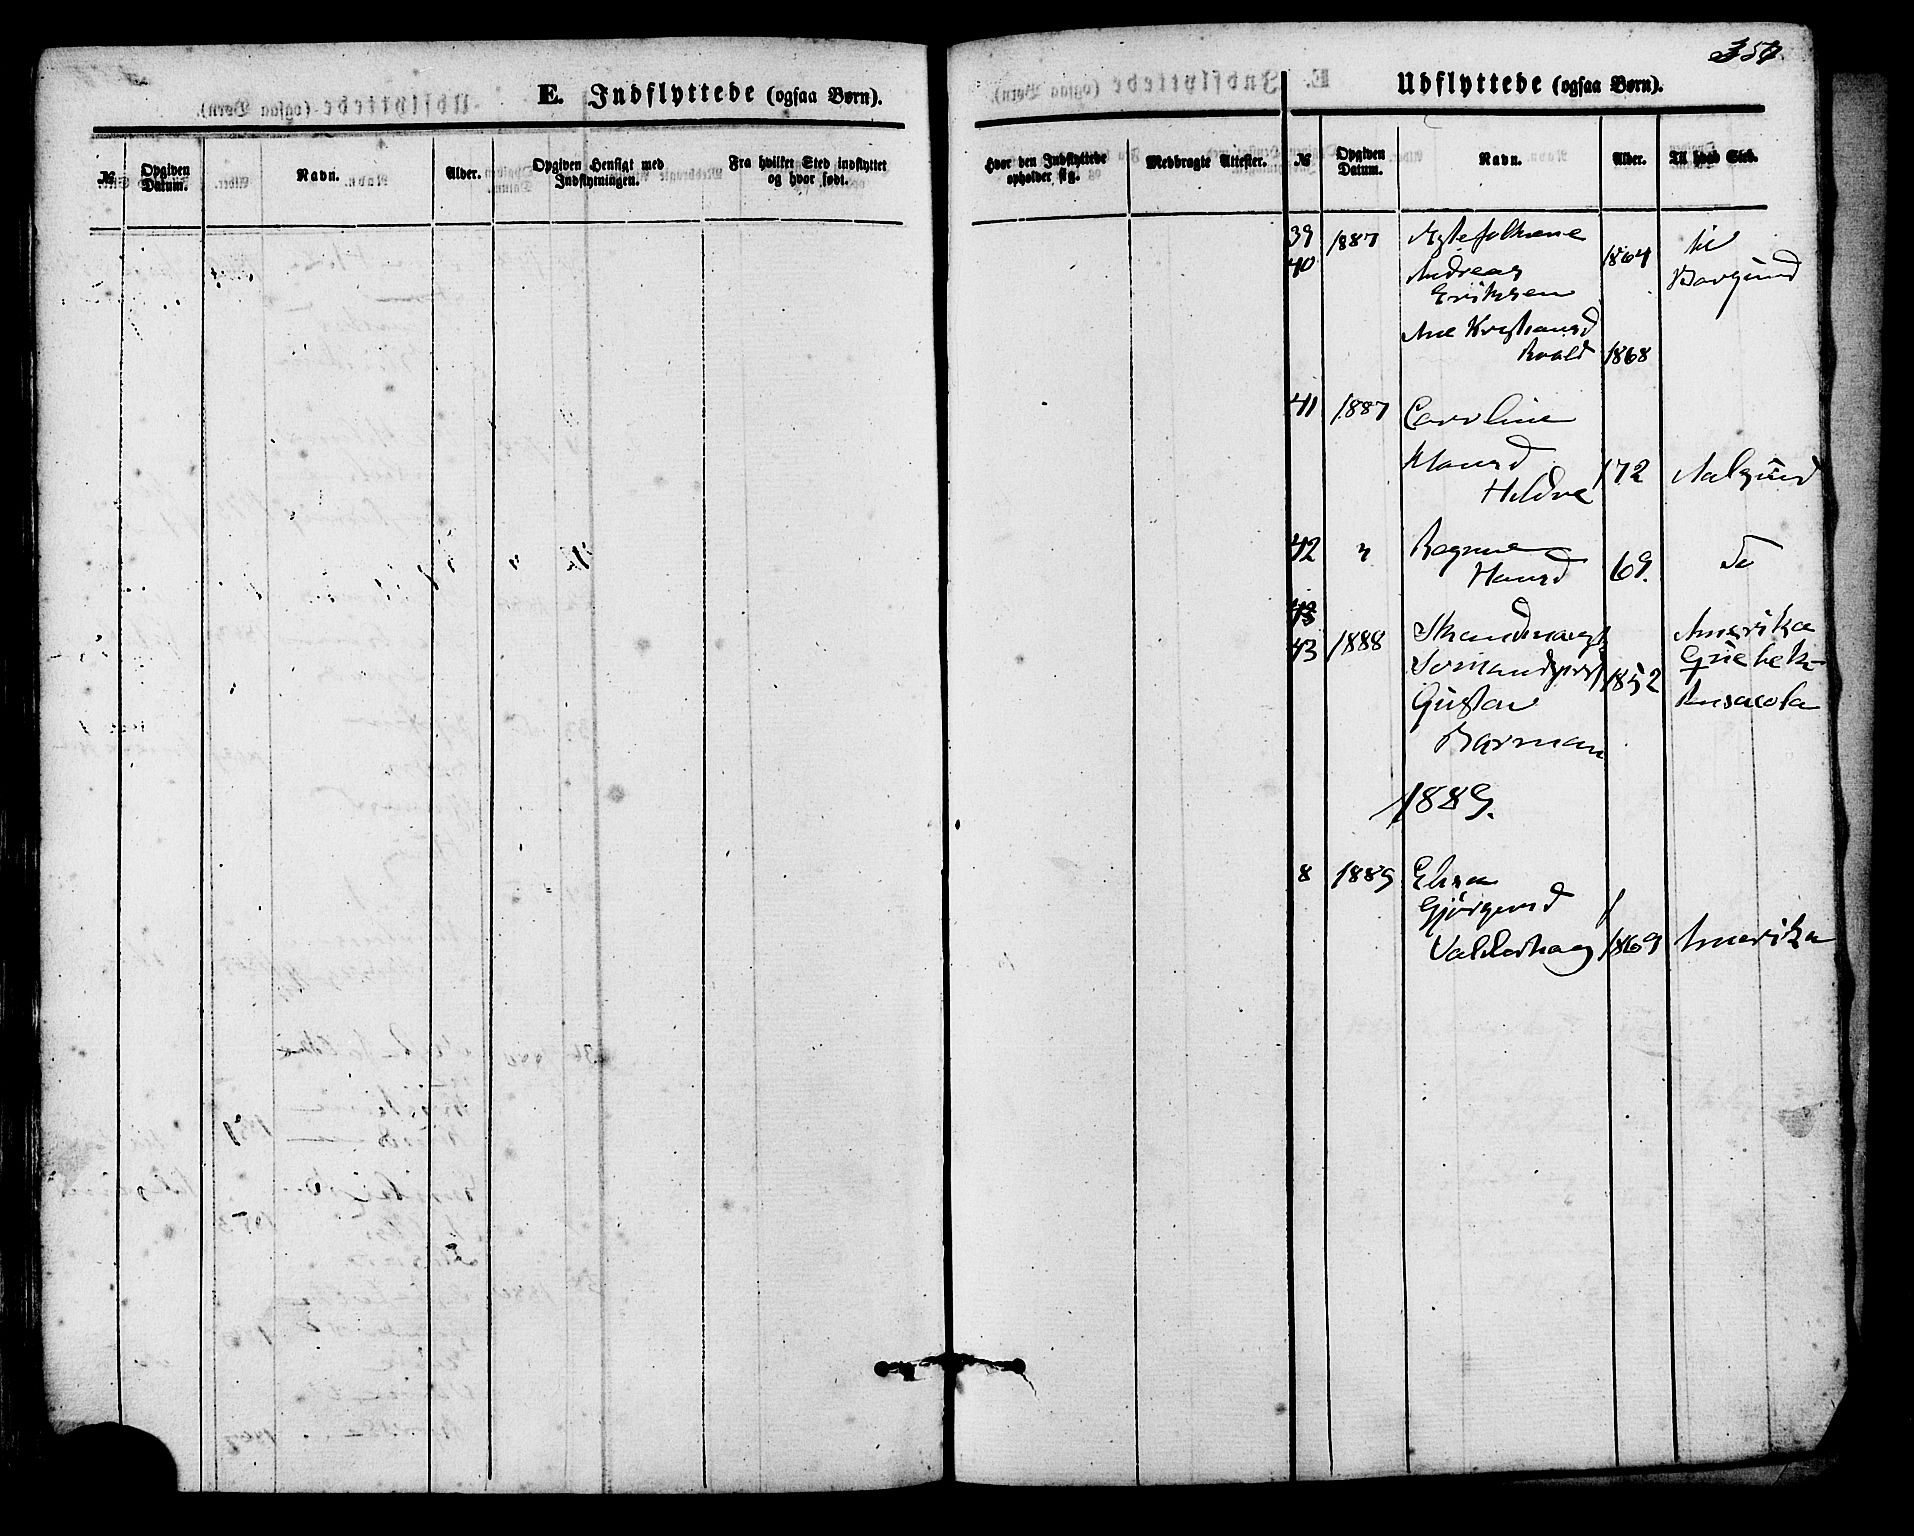 E. Indflyttede (ogsaa Børn).
№
Opgiven Datum.
Navn.
Alder.
Opgiven Hensigt med Indflytningen.
Fra hvilket Sted indflyttet og hvor født.
Hvor den Indflyttede opholder sig.
Medbragte Attester.
Udflyttede (ogsaa Børn).
№
Opgiven Datum.
Navn.
Alder.
Til hvad Sted.
39 1887 Ægtefolkene til
40 Andreas 1864 Borgund
Eriksen
Ane Kristiansd
Roald 1868
41 1887 Caroline
Klausd 172 Aalesund
Hildre
42 " Ragna
Hansd 69. do
43
43 1888 Amerika
1852
Gustav
Barman
1889.
8 1889 Elisa
Gjørgensd
Valderhaug 1869 Amerika